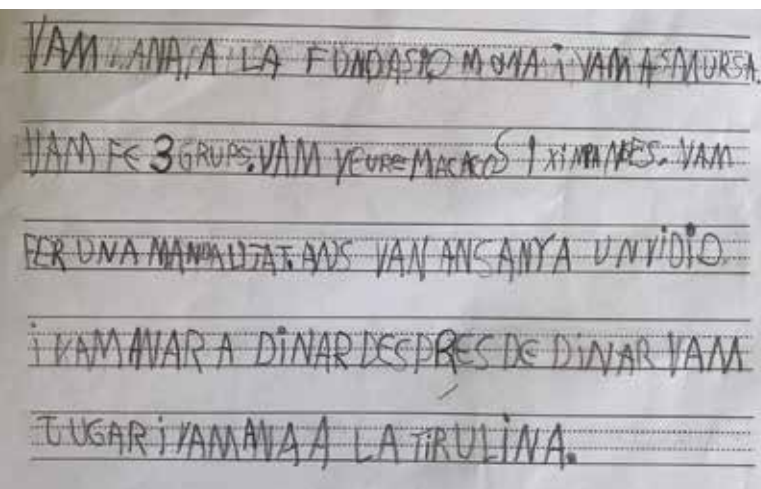 VAM ANA A LA FUNDASIO MONA i VAM ASMURSA.
VAM FE 3 GRUPS. VAM VEURE MACACOS I XIMPANZES. VAM
FER UNA MANUALITAT. ANS VAN ANSANYA UN VIDIO
i VAM ANAR A DiNAR DESPRES DE DiNAR VAM
JUGAR i VAM ANA A LA TiRULiNA.